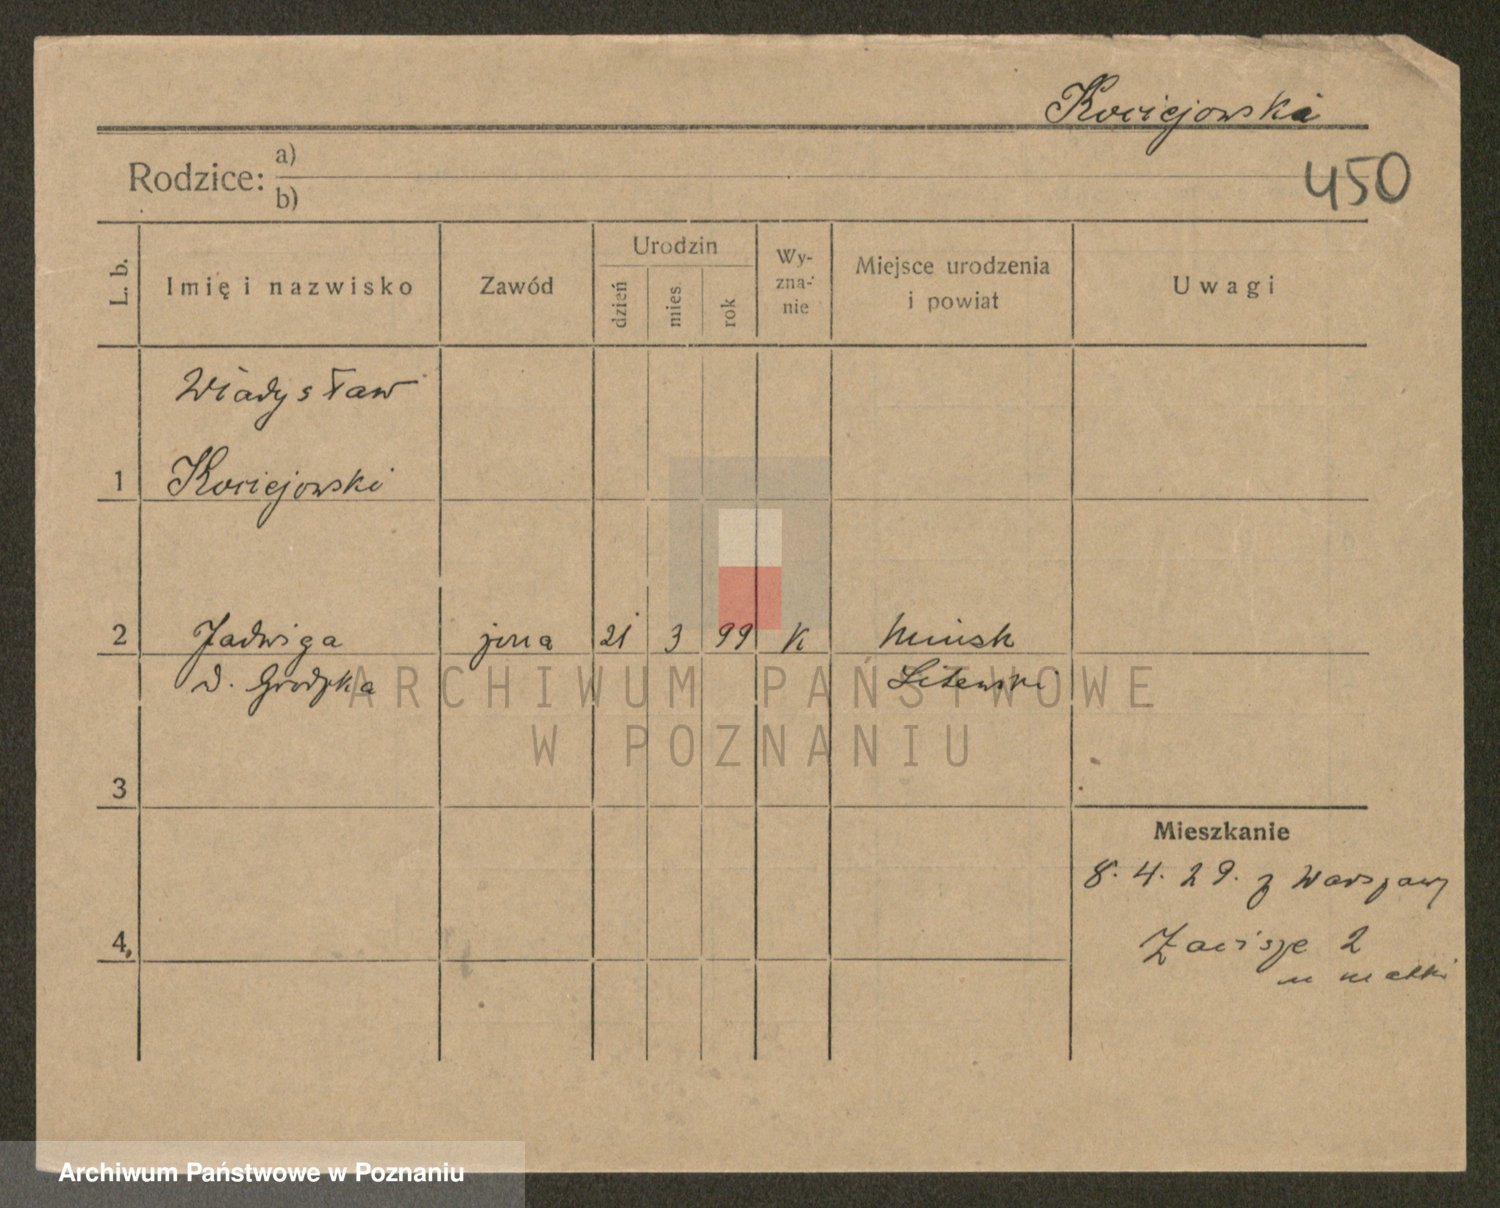 Kociejowska
Rodzice: a)
b)
450
L. b.
Imię i nazwisko
Zawód
Urodzin
dzień
mies.
rok
Wy-
zna-
nie
Miejsce urodzenia
i powiat
Uwagi
Władysław
1 Kociejowski
2 Jadwiga żona 21 3 99 K Mińsk
d. Grodzka Litewski
ARCHIWUM PAŃSTWOWE
W POZNANIU
3
Mieszkanie
8. 4. 29. z Warszawy
4, Zacisze 2
u matki
Archiwum Państwowe w Poznaniu